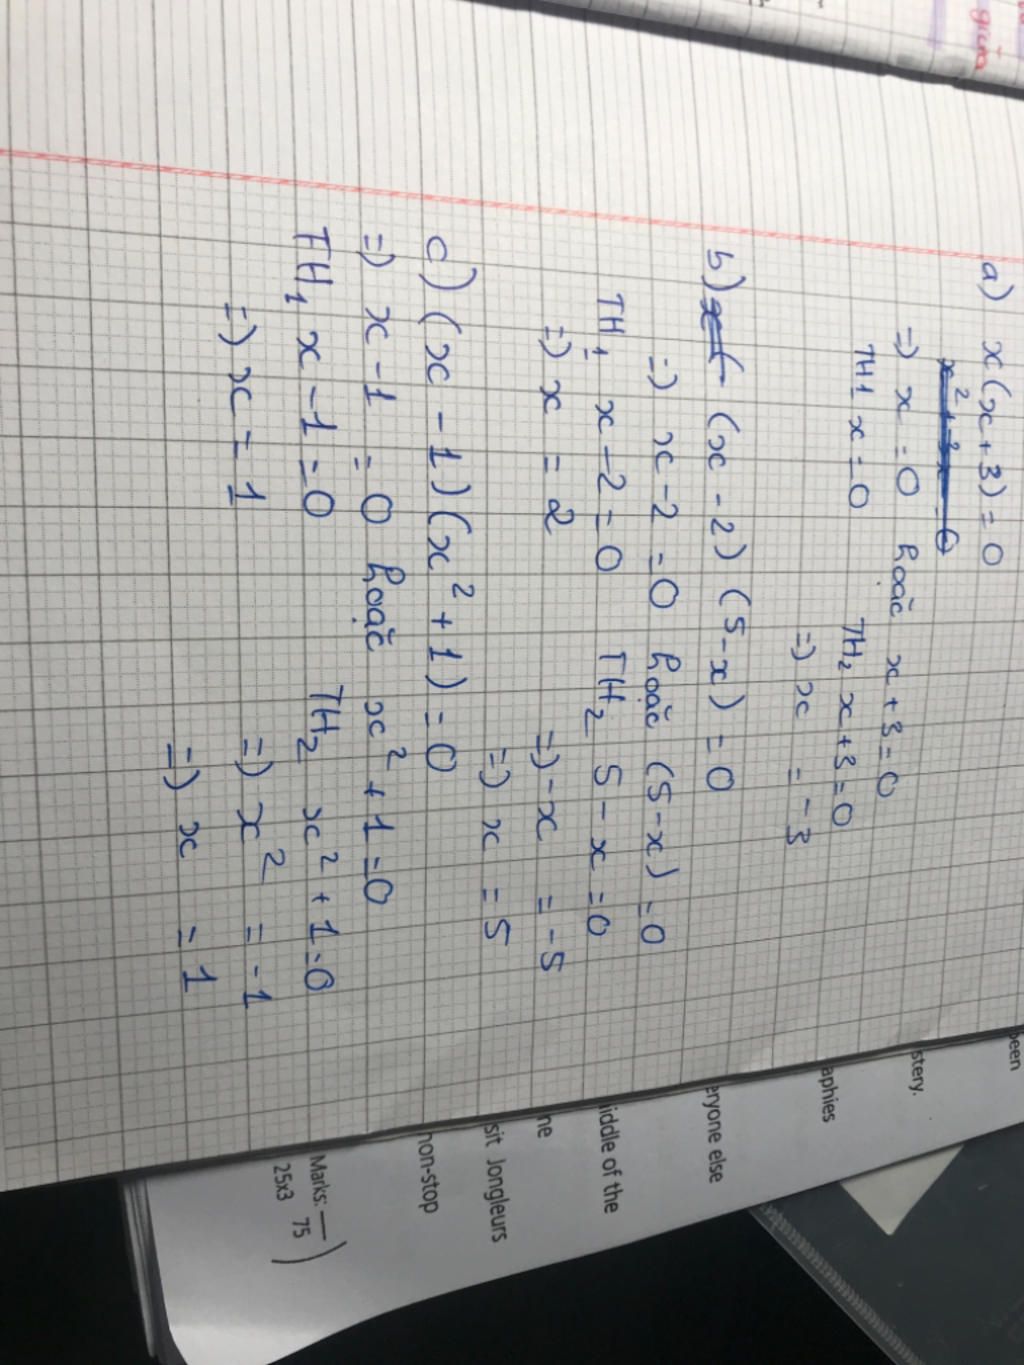 giữa
a) x(x+3)=0
x² + 3x = 0
=) x = 0 hoặc x + 3 = 0
TH1 x = 0 TH2 x + 3 = 0
=) x = -3
b) (x - 2) (5 - x) = 0
=) x - 2 = 0 hoặc (5 - x) = 0
TH1 x - 2 = 0 TH2 5 - x = 0
=) x = 2 =) - x = - 5
=) x = 5
c) (x - 1) (x² + 1) = 0
=) x - 1 = 0 hoặc x² + 1 = 0
TH1 x - 1 = 0 TH2 x² + 1 = 0
=) x = 1 =) x² = -1
=) x = 1
been
stery.
aphies
eryone else
iddle of the
ne
sit Jongleurs
non-stop
Marks: __
25x3 75 )